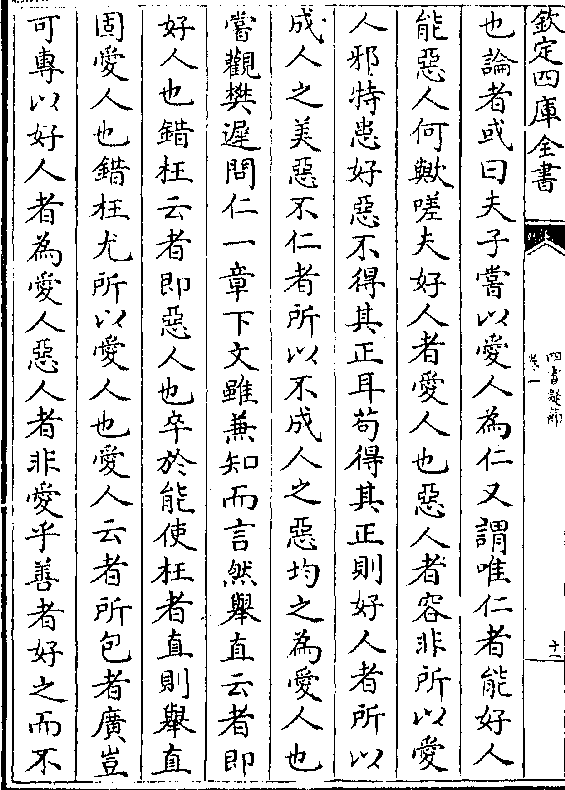 欽定四庫全書
四書疑節
卷一
十一
也論者或曰夫子嘗以愛人為仁又謂唯仁者能好人
能惡人何歟嗟夫好人者愛人也惡人者容非所以愛
人邪特患好惡不得其正耳苟得其正則好人者所以
成人之美惡不仁者所以不成人之惡均之為愛人也
嘗觀樊遲問仁一章下文雖兼知而言然舉直云者即
好人也錯枉云者即惡人也卒於能使枉者直則舉直
固愛人也錯枉尤所以愛人也愛人云者所包者廣豈
可專以好人者為愛人惡人者非愛乎善者好之而不